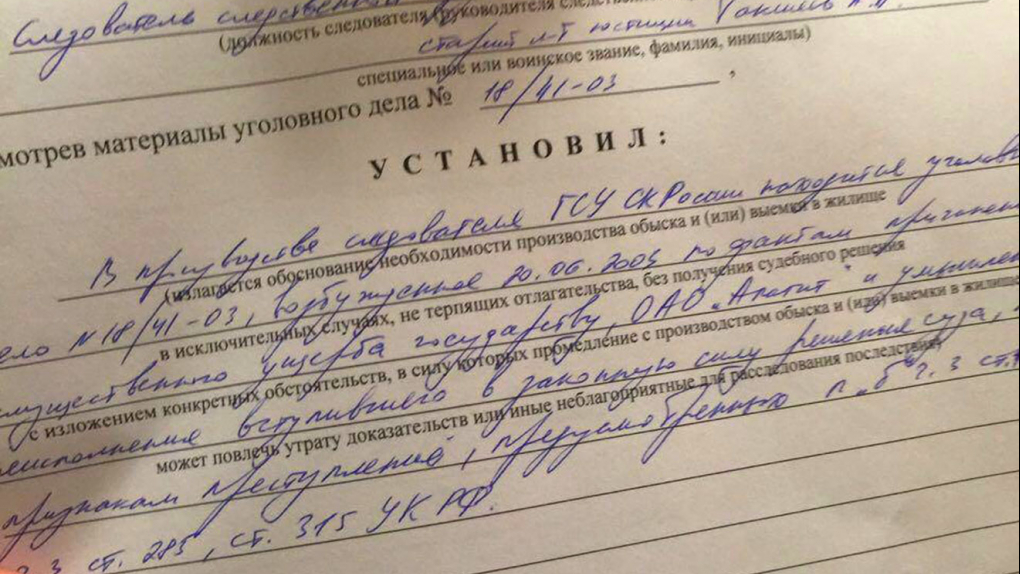 Следователь следственной
(должность следователя (руководителя следств
старший л-т юстиции
специальное или воинское звание, фамилия, инициалы)
мотрев материалы уголовного дела № 18/41-03 ,
УСТАНОВИЛ:
В производстве следователя ГСУ СК России находится уголовн
(излагается обоснование необходимости производства обыска и (или) выемки в жилище
ело №18/41-03, возбужденное 20.06.2003 по фактам причинен
в исключительных случаях, не терпящих отлагательства, без получения судебного решения
мущественного ущерба государству, ОАО „Апатит" и умышлен
с изложением конкретных обстоятельств, в силу которых промедление с производством обыска и (или) выемки в жилище
неисполнение вступившего в законную силу решение суда,
может повлечь утрату доказательств или иные неблагоприятные для расследования последствия)
признакам преступлений, предусмотренную п. „б" ч. 3 ст.
ч. 3 ст. 285, ст. 315 УК РФ.